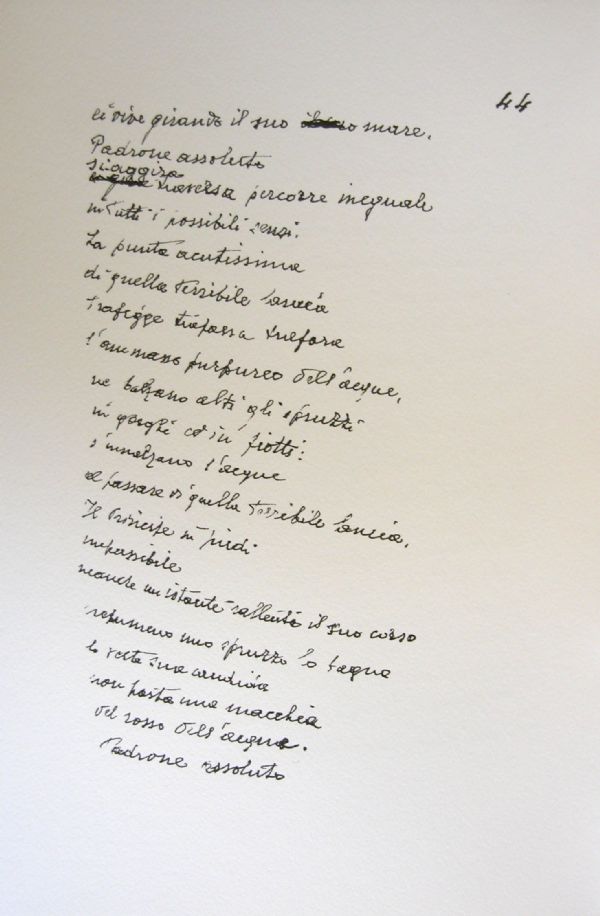 44
ei vive girando il suo mare.
Padrone assoluto
si aggira
traversa percorre ineguale
in tutti i possibili sensi.
La punta acutissima
di quella terribile lancia
trafigge trapassa trafora
l'ammasso purpureo dell'acque,
ne balzano alti gli spruzzi
in gorghi ed in fiotti:
s'innalzano l'acque
al passare di quella terribile lancia.
Il Principe in piedi
impassibile
neanche un istante rallenta il suo corso
nemmeno uno spruzzo lo bagna
la veste sua candida
non porta una macchia
del rosso dell'acqua.
Padrone assoluto